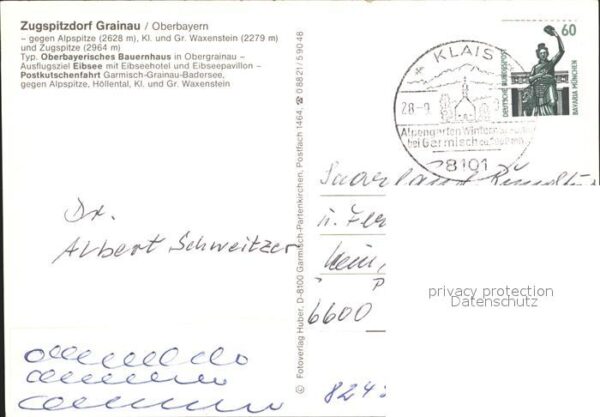 Zugspitzdorf Grainau / Oberbayern
– gegen Alpspitze (2628 m), Kl. und Gr. Waxenstein (2279 m)
und Zugspitze (2964 m)
Typ. Oberbayerisches Bauernhaus in Obergrainau –
Ausflugsziel Eibsee mit Eibseehotel und Eibseepavillon –
Postkutschenfahrt Garmisch-Grainau-Badersee,
gegen Alpspitze, Höllental, Kl. und Gr. Waxenstein
Dr.
Albert Schweitzer
© Fotoverlag Huber, D-8100 Garmisch-Partenkirchen, Postfach 1464, ☎ 08821/59048
KLAIS
28.-9.
Alpengarten Winter
bei Garmisch
8101
60
DEUTSCHE BUNDESPOST
BAVARIA MÜNCHEN
Saarland
u.
6600
824
privacy protection
Datenschutz